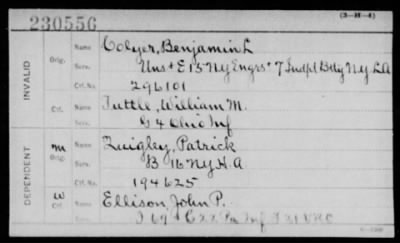 (3-H-4)
230556
INVALID
Orig.
Name Colyer, Benjamin L
Serv. Uns + E 15 Ny Engrs + 7 Indpt Btty Ny L A
Ctf. No. 296101
Ctf.
Name Tuttle, William M.
Serv. G 4 Ohio Inf
DEPENDENT
M
Orig.
Name Quigley, Patrick
Serv. B 16 NY H.A
Ctf. No. 194625
W
Ctf.
Name Ellison, John P.
Serv.